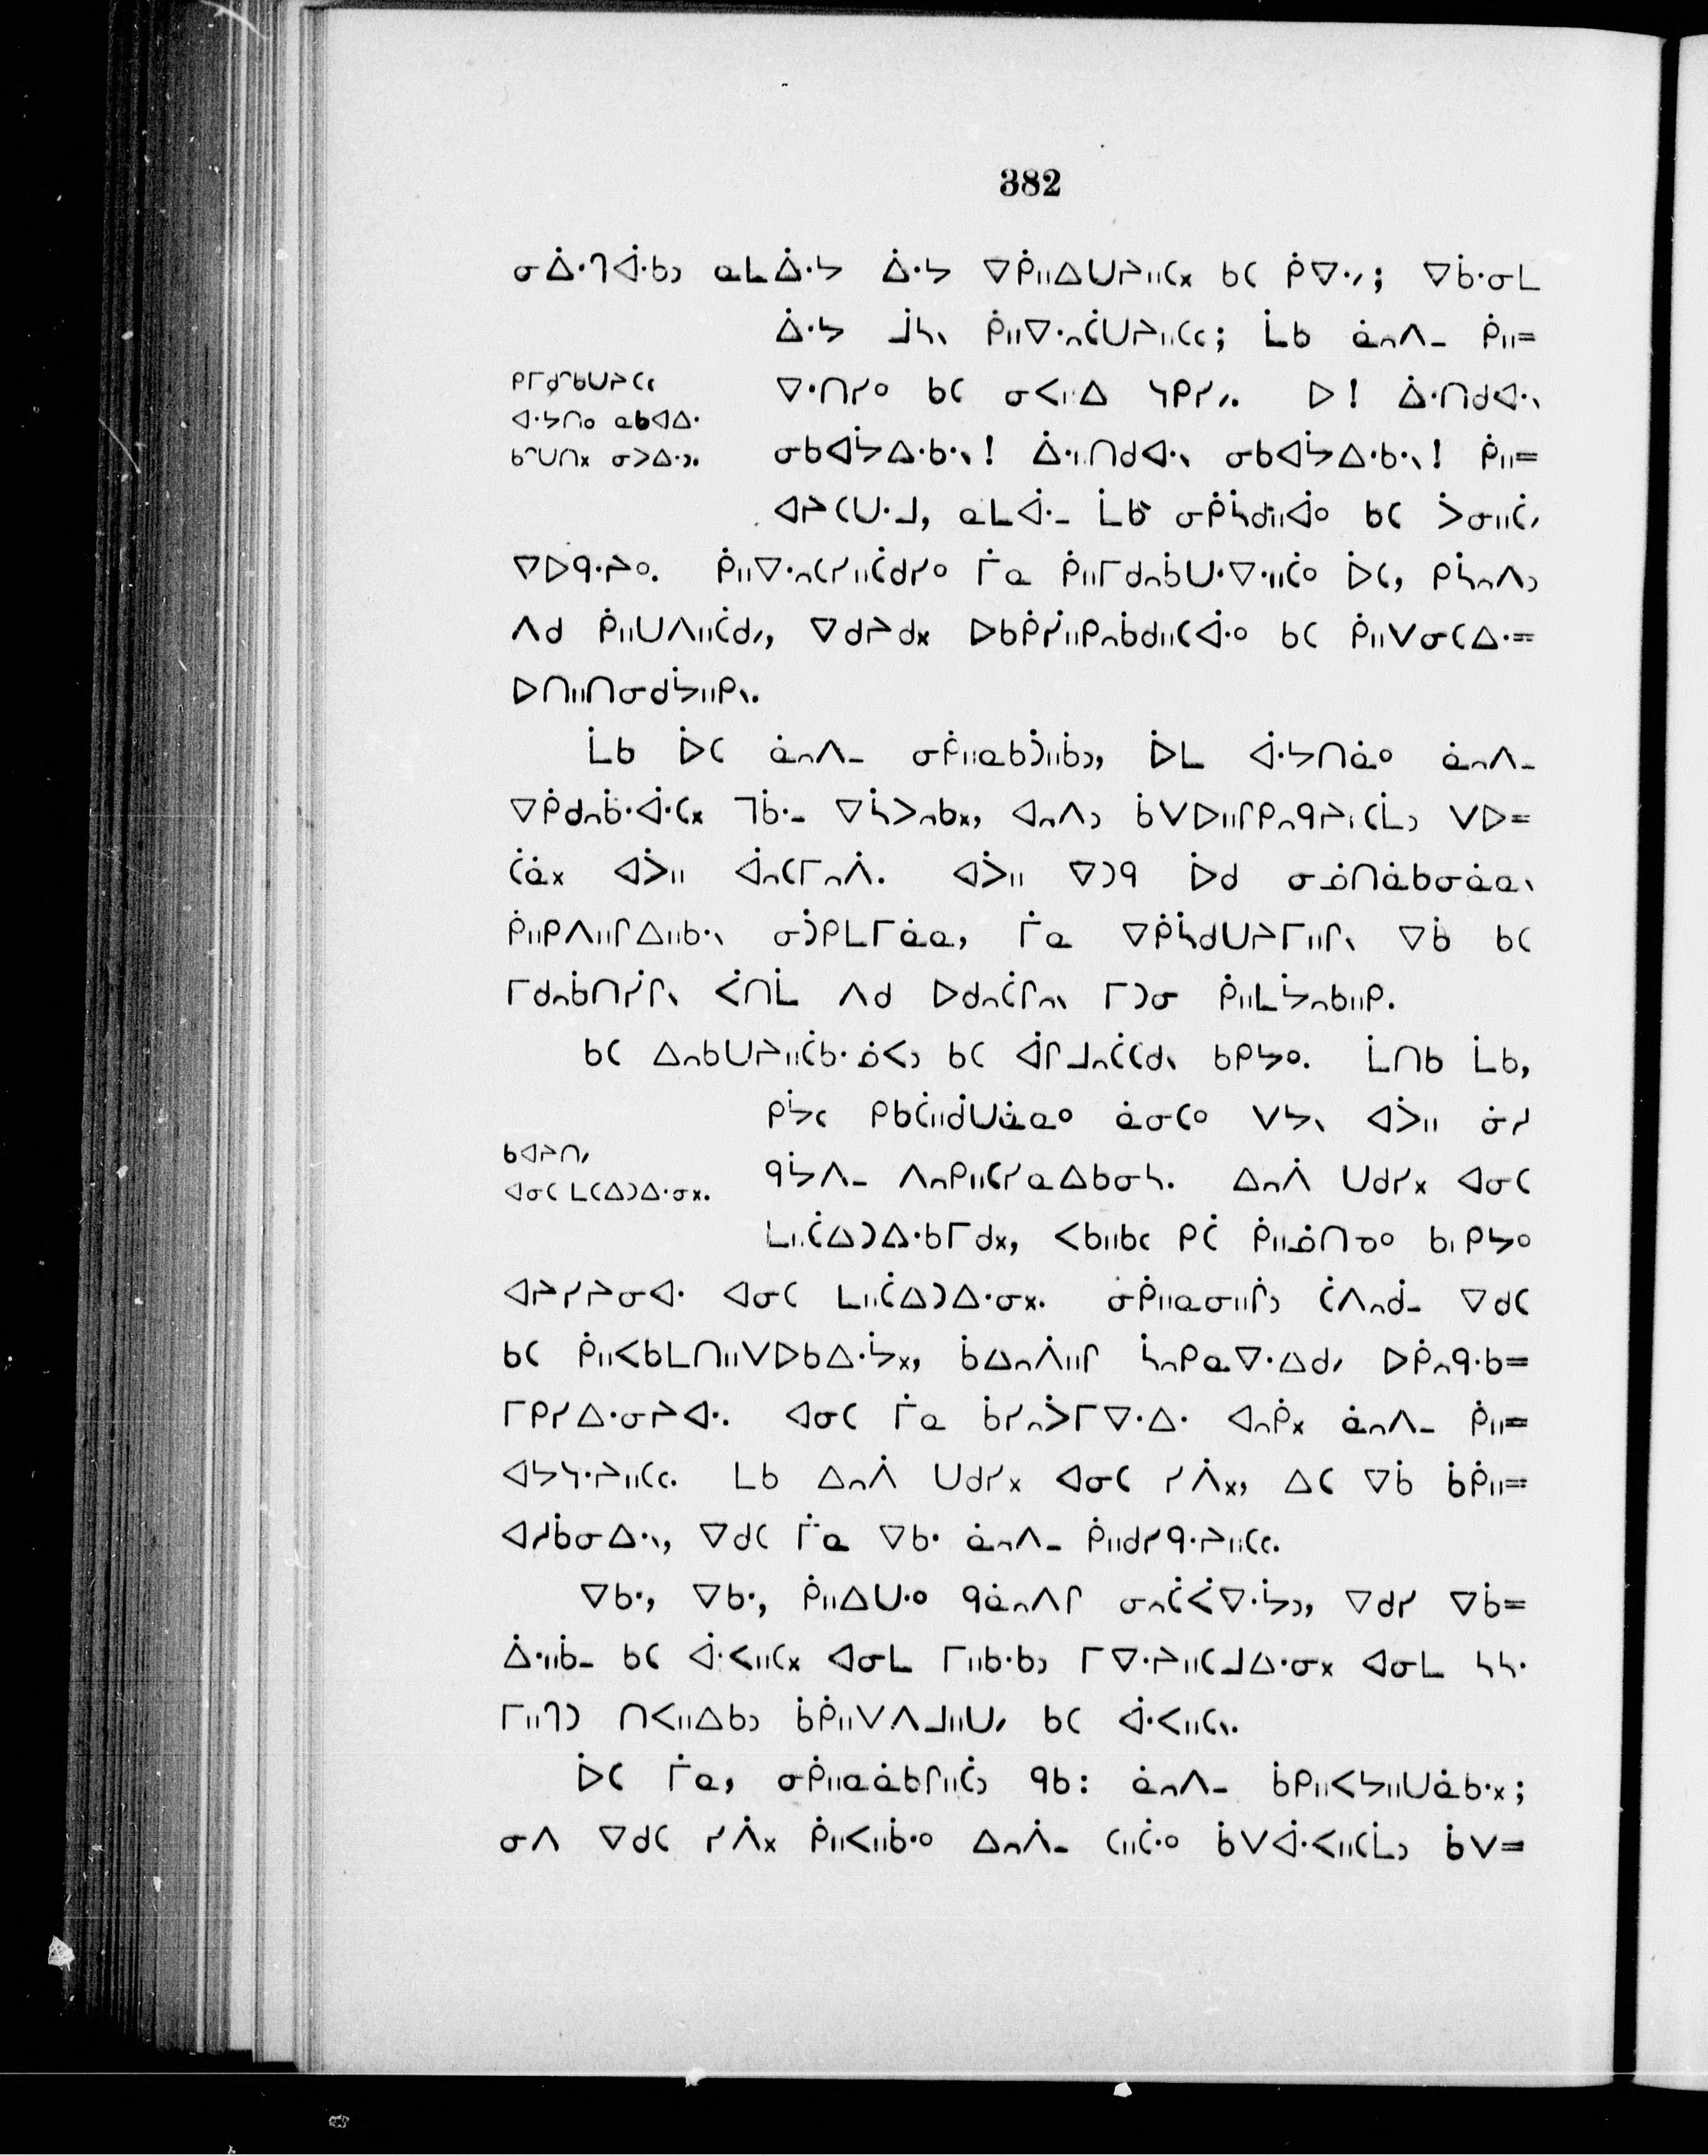 382
ᓂᐄᐧᒉᐋᐧᑲᐣ ᓇᒪᐄᐧᔭ ᐄᐧᔭ ᐁᑮᐦᐃᑌᔨᐦᑕᕽ ᑲᑕ ᑮᐁᐧᐟ; ᐁᑳᐧᓂᒪ
ᐄᐧᔭ ᒨᓴᐠ ᑮᐦᐁᐧᐢᑖᑌᔨᐦᑕᒼ; ᒫᑲ ᓈᐢᐱᐨ ᑮᐦ=
ᑭᒥᑯᐢᑲᑌᔨᑕᒼ
ᐊᐧᔭᑎᐤ ᓇᑲᐊᐃᐧ
ᑲᐢᑌᑎᕽ ᓂᐳᐃᐧᐣ.
ᐁᐧᑎᓯᐤ ᑲᑕ ᓂᐸᐦᐃ ᓭᑭᓯᐟ. ᐅ! ᐄᐧᑎᑯᐊᐧᐠ
ᓂᑲᐊᔮᐃᐧᑲᐧᐠ! ᐄᐧᐦᑎᑯᐊᐧᐠ ᓂᑲᐊᔮᐃᐧᑲᐧᐠ! ᑮᐦ=
ᐊᔨᑕᑌᐧᒧ, ᓇᒪᐋᐧᐨ ᒫᑲ ᓂᑮᓵᑯᐦᐋᐤ ᑲᑕ ᐴᓂᐦᑖᐟ
ᐁᐅᑫᐧᔨᐤ. ᑮᐦᐁᐧᐢᑕᓯᐦᑖᑯᓯᐤ ᒦᓇ ᑮᐦᒥᑯᐢᑳᑌᐧᐁᐧᐦᑖᐤ ᐆᑕ, ᑭᓵᐢᐱᐣ
ᐱᑯ ᑮᐦᑌᐱᐦᑖᑯᐟ, ᐁᑯᔨᑯᕽ ᐅᑲᑮᓰᐦᑭᐢᑳᑯᐦᑕᐋᐧᐤ ᑲᑕ ᑮᐦᐯᓂᑕᐃᐧ=
ᐅᑎᐦᑎᓂᑯᔮᐦᑭᐠ.
ᒫᑲ ᐆᑕ ᓈᐢᐱᐨ ᓂᑮᐦᓇᑲᑑᐦᑳᐣ, ᐆᒪ ᐋᐧᔭᑎᓈᐤ ᓈᐢᐱᐨ
ᐁᑮᑯᐢᑳᐧᐋᐧᑕᕽ ᒣᑳᐧᐨ ᐁᓵᐳᐢᑲᕽ, ᐊᐢᐱᐣ ᑳᐯᐅᐦᒋᑭᐢᑫᔨᐦᑕᒫᐣ ᐯᐅ=
ᑖᓈᕽ ᐊᐴᐦ ᐋᐢᑕᒥᐢᐲ. ᐊᐴᐦ ᐁᑐᑫ ᐆᑯ ᓂᓅᑎᓈᑲᓂᓈᓇᐠ
ᑮᐦᑭᐱᐦᒋᐃᐦᑲᐧᐠ ᓂᑑᑭᒪᒥᓈᓇ, ᒦᓇ ᐁᑮᓵᑯᑌᔨᒥᐦᒋᐠ ᐁᑳ ᑲᑕ
ᒥᑯᐢᑳᑎᓰᒋᐠ ᐹᑎᒫ ᐱᑯ ᐅᑯᐢᑖᒋᐢᐠ ᒥᑐᓂ ᑮᐦᒪᔮᐢᑲᐦᑭ.
ᑲᑕ ᐃᐢᑲᑌᔨᐦᑖᑲᐧ ᓅᐸᐣ ᑲᑕ ᐋᒋᒧᐢᑖᑕᑯᐠ ᑲᑭᔭᐤ. ᒫᑎᑲ ᒫᑲ,
ᑭᔮᒼ ᑭᑲᑖᐦᑰᑌᓈᓇᐤ ᓈᓂᑕᐤ ᐯᔭᐠ ᐊᐴᐦ ᓃᓱ
ᑲᐊᔨᑎᐟ
ᐊᓂᑕ ᒪᑕᐃᑐᐃᐧᓂᕽ.
ᑫᔮᐱᐨ ᐱᐢᑭᐦᑕᓯᓇᐃᑲᓂᓴ. ᐃᐢᐲ ᑌᑯᓯᕽ ᐊᓂᑕ
ᒪᐦᑖᐃᑐᐃᐧᑲᒥᑯᕽ, ᐸᑲᐦᑲᒼ ᑭᑖ ᑮᐦᓅᑎᓀᐤ ᑲᑭᔭᐤ
ᐊᔨᓯᔨᓂᐊᐧ ᐊᓂᑕ ᒪᐦᑖᐃᑐᐃᐧᓂᕽ. ᓂᑮᐦᓇᓂᐦᒌᐣ ᑖᐱᐢᑰᐨ ᐁᑯᑕ
ᑲᑕ ᑮᐦᐸᑲᒪᑎᐦᐯᐅᑲᐃᐧᔮᕽ, ᑳᐃᐢᐲᐦᒋ ᓵᐢᑭᓇᐁᐧᐃᑯᐟ ᐅᑮᐢᑫᐧᑲ=
ᒥᑭᓯᐃᐧᓂᔨᐊᐧ. ᐊᓂᑕ ᒦᓇ ᑳᓯᐢᐴᒥᐁᐧᐃᐧ ᐊᐢᑮᕽ ᓈᐢᐱᐨ ᑮᐦ=
ᐊᔭᓭᐧᔨᐦᑕᒼ. ᒪᑲ ᐃᐢᐲ ᑌᑯᓯᕽ ᐊᓂᑕ ᓰᐲᕽ, ᐃᑕ ᐁᑳ ᑳᑮᐦ=
ᐊᓱᑳᓂᐃᐧᐠ, ᐁᑯᑕ ᒦᓇ ᐁᑲᐧ ᓈᐢᐱᐨ ᑮᐦᑯᓯᑫᐧᔨᐦᑕᒼ.
ᐁᑲᐧ, ᐁᑲᐧ, ᑮᐦᐃᑌᐧᐤ ᑫᓈᐢᐱᒋ ᓂᐢᑖᐹᐁᐧᔮᐣ, ᐁᑯᓯ ᐁᑳ=
ᐄᐧᐦᑳᐨ ᑲᑕ ᐋᐧᐸᐦᑕᕽ ᐊᓂᒪ ᒥᐦᑲᐧᑲᐣ ᒥᐁᐧᔨᐦᑕᒧᐃᐧᓂᕽ ᐊᓂᒪ ᓴᓴᐧ
ᒥᐦᒉᑐ ᑎᐸᐦᐃᑲᐣ ᑳᑮᐦᐯᐱᒧᐦᑌᐟ ᑲᑕ ᐋᐧᐸᐦᑕᐠ.
ᐆᑕ ᒦᓇ, ᓂᑮᐦᓇᓈᑲᒋᐦᑖᐣ ᑫᑲ: ᓈᐢᐱᐨ ᑳᑭᐦᐸᔭᐦᑌᓈᑲᐧᕽ;
ᓂᐱ ᐁᑯᑕ ᓰᐲᕽ ᑮᐦᐸᐦᑳᐧᐤ ᐃᐢᐲᐨ ᑕᐦᑖᐧᐤ ᑳᐯᐋᐧᐸᐦᑕᒫᐣ ᑳᐯ=